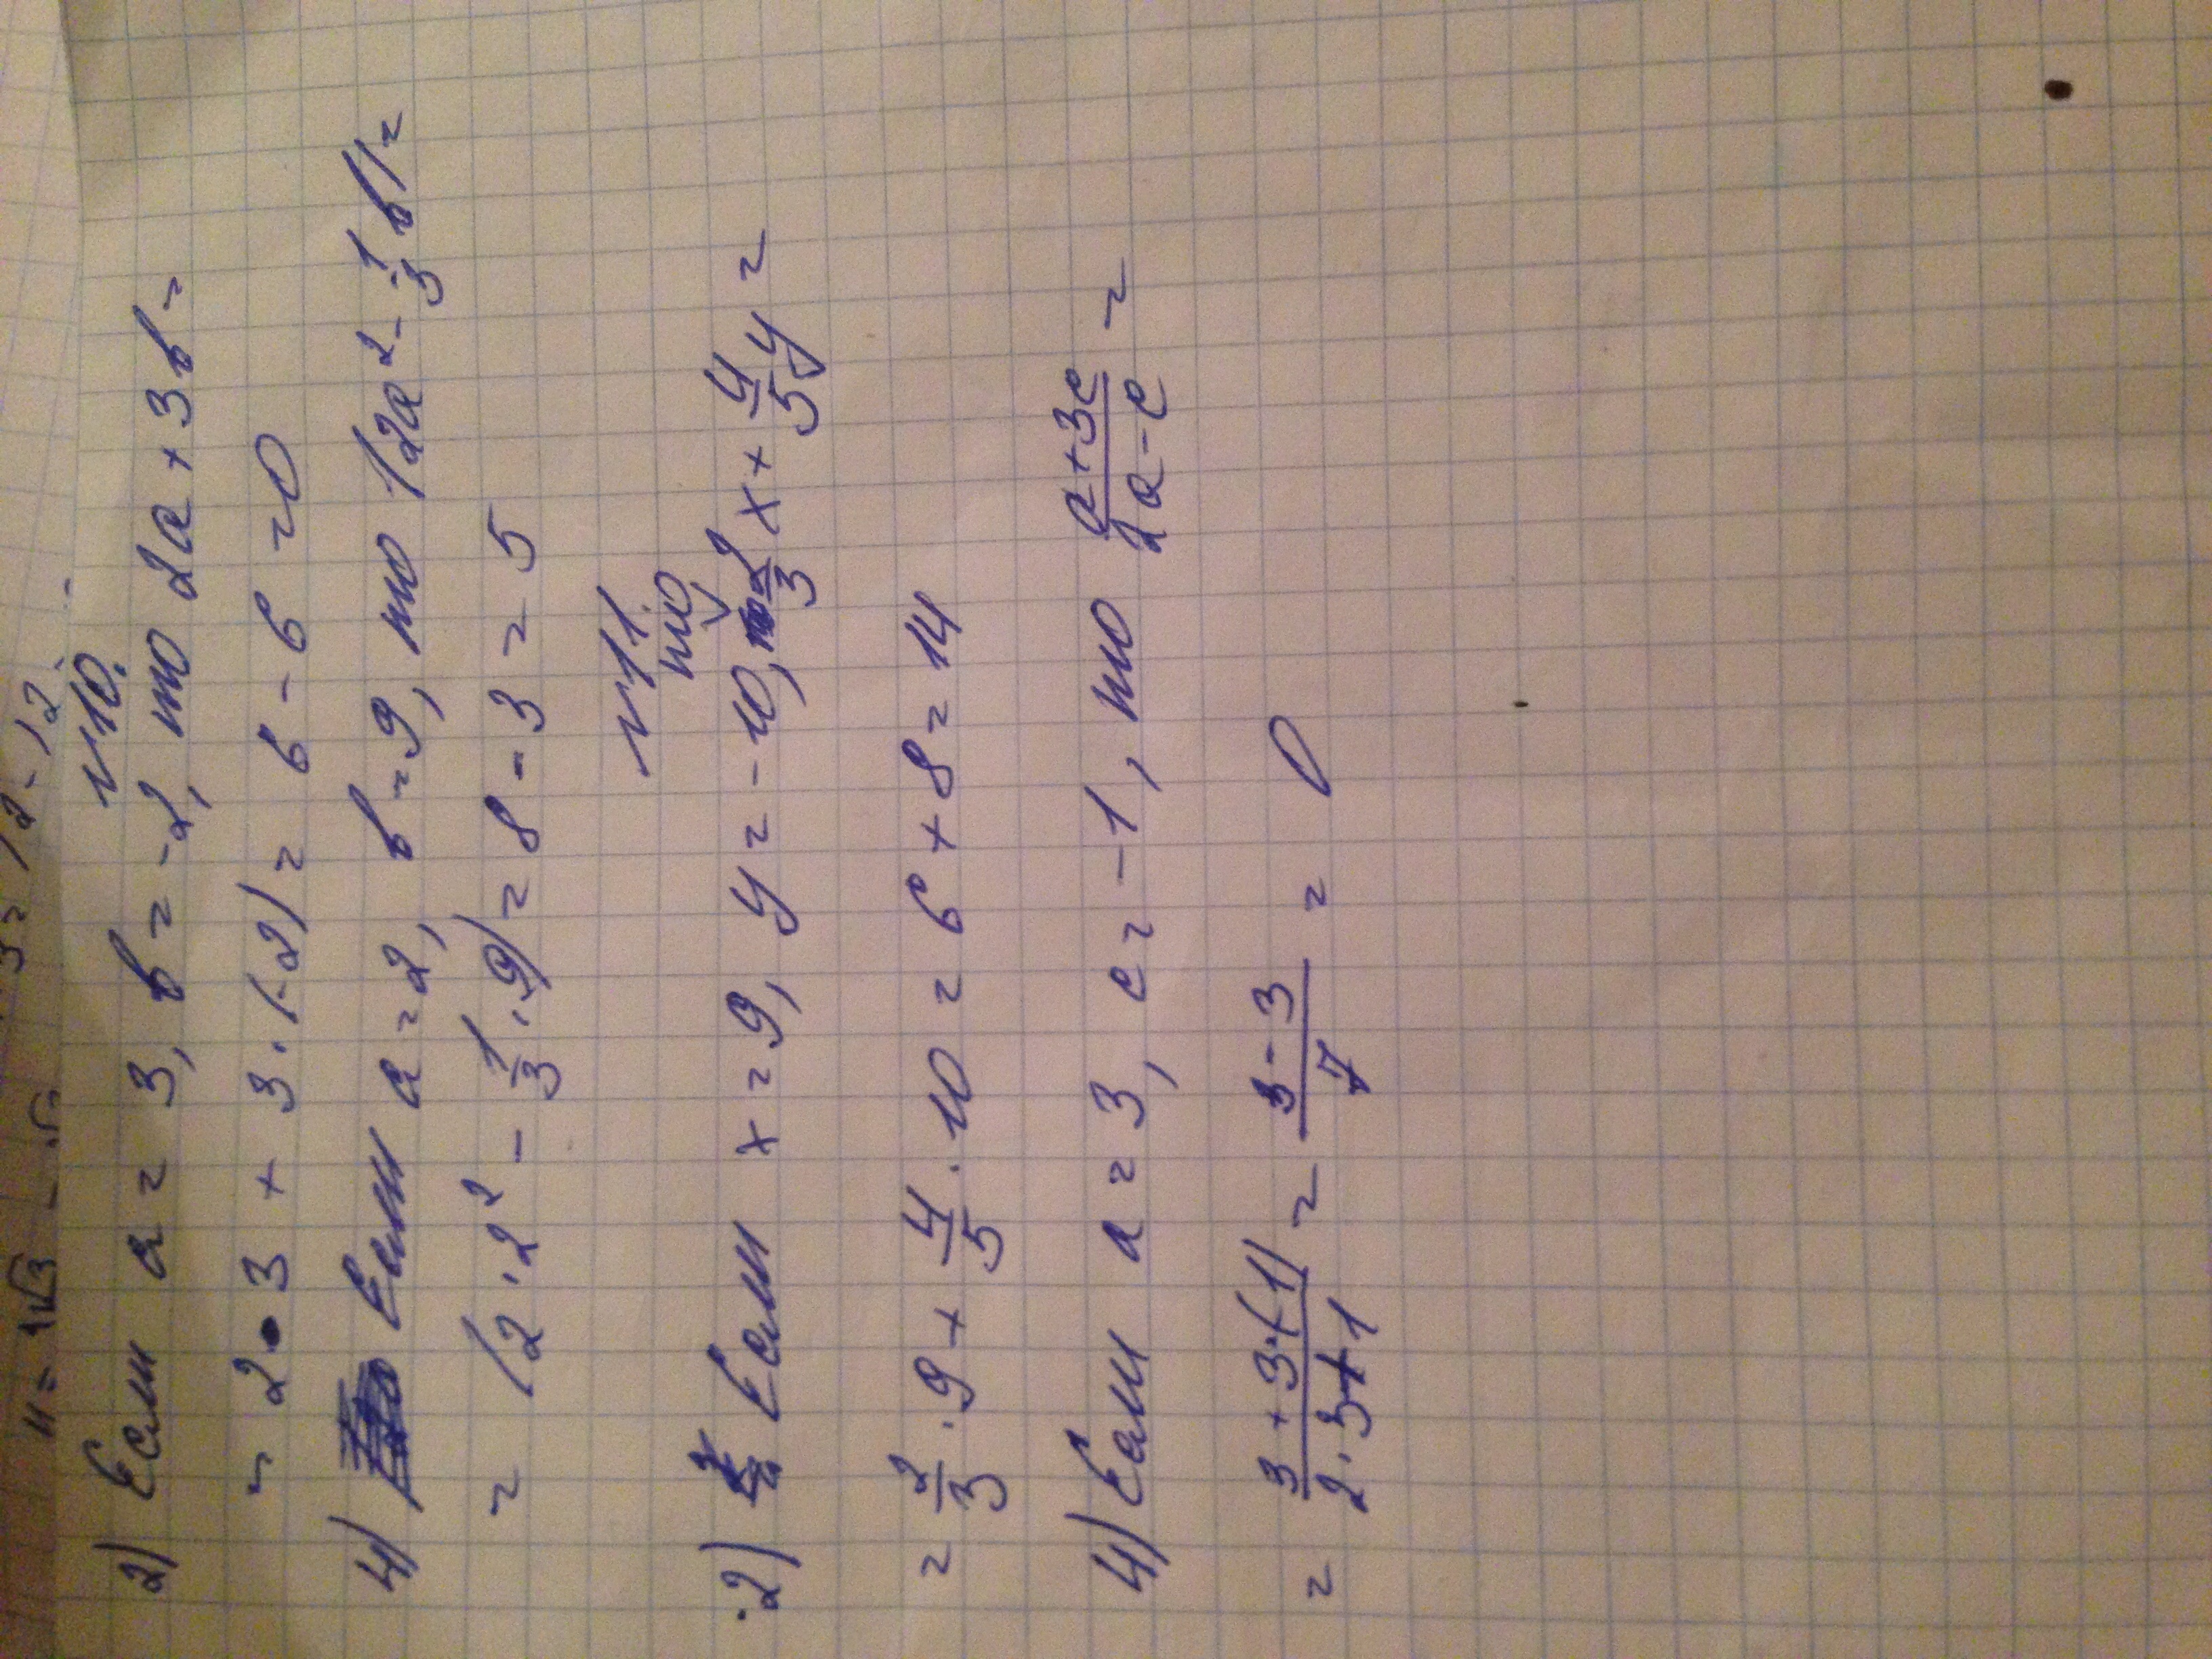 №10.
2) Если a = 3, b = -2, то 2a + 3b =
= 2 · 3 + 3 · (-2) = 6 - 6 = 0
4) Если a = 2, b = 9, то (2a² - 1/3 b) =
= (2 · 2² - 1/3 · 9) = 8 - 3 = 5
№11.
то
2) Если x = 9, y = -10, 2/3 x + 4/5 y =
= 2/3 · 9 + 4/5 · 10 = 6 + 8 = 14
4) Если a = 3, c = -1, то a+3c/2a-c =
= 3+3·(-1)/2·3+1 = 3-3/7 = 0